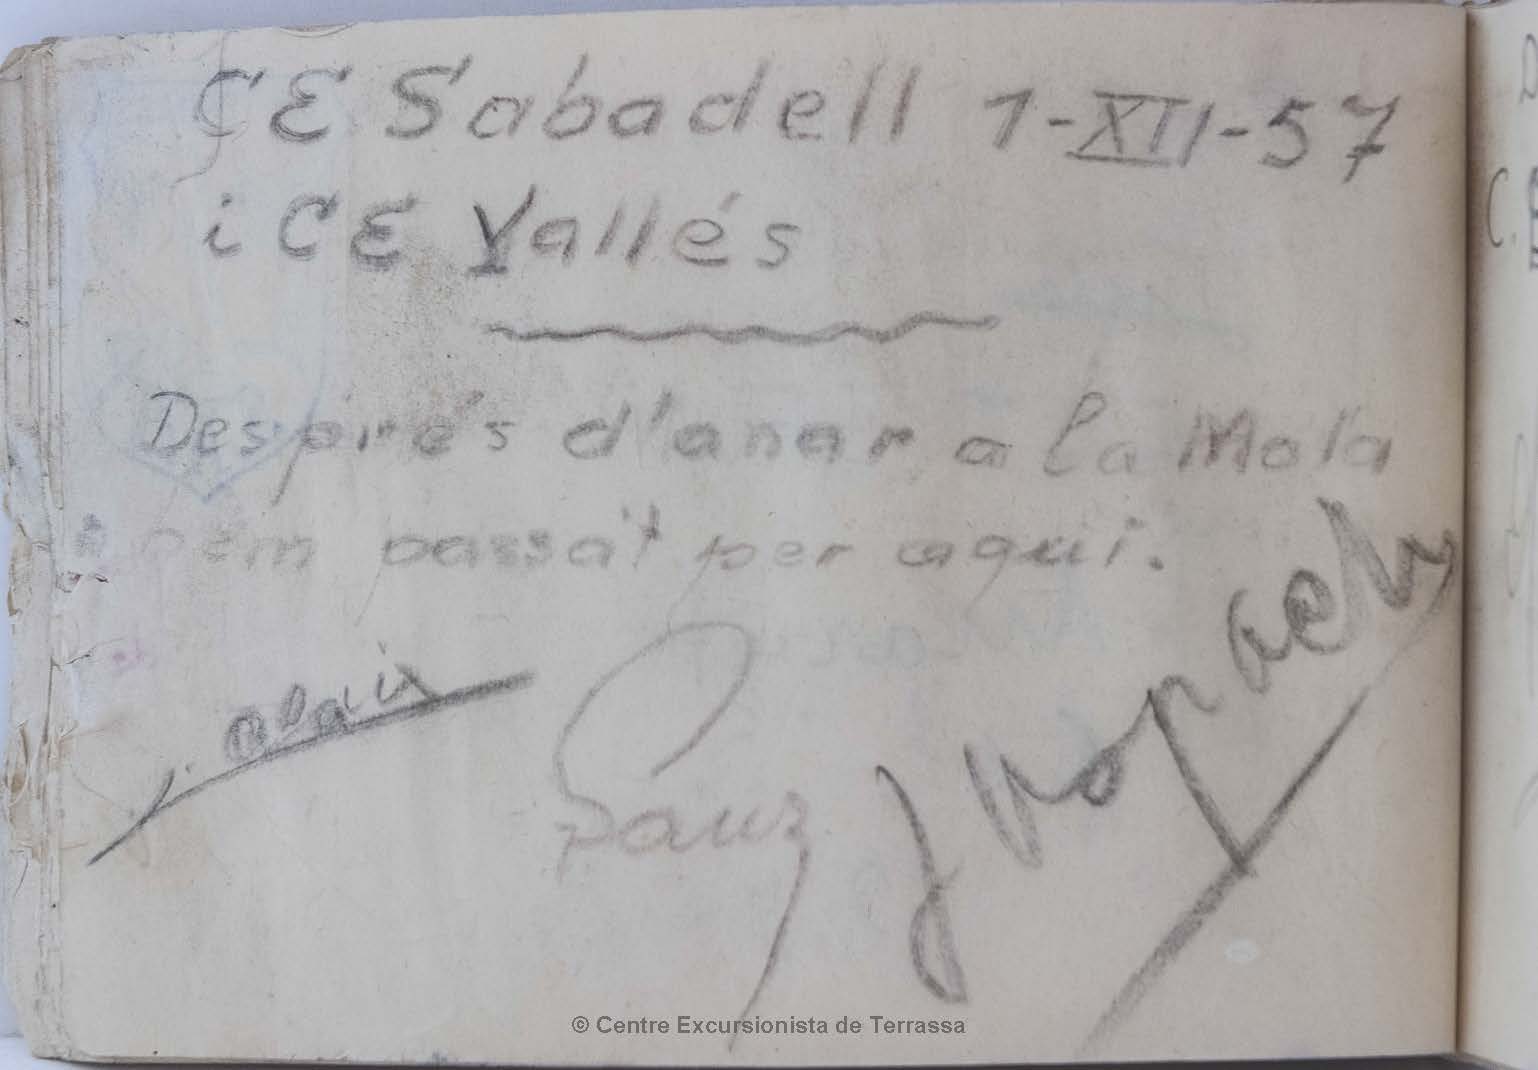 CE Sabadell 1-XII-57
i CE Vallés
Després d'anar a la Mola
hem passat per aquí.
J.
© Centre Excursionista de Terrassa